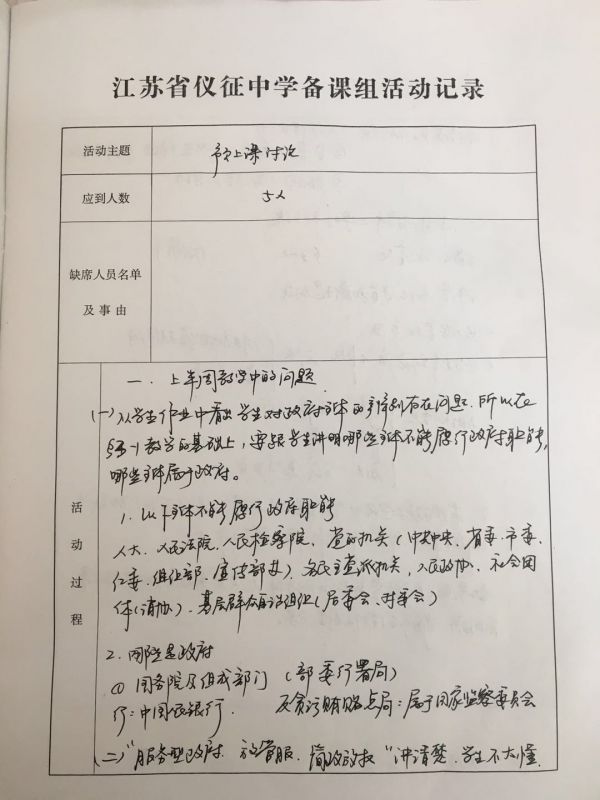 江苏省仪征中学备课组活动记录
活动主题
上课讨论
应到人数
5人
缺席人员名单
及事由
活动过程
一、上半周教学中的问题
(一)从学生作业中看出学生对政府主体的判别存在问题.所以在
教学的基础上,要跟学生讲明哪些主体不能履行政府职能,
哪些主体属于政府。
1.以下主体不能履行政府职能
人大、人民法院、人民检察院、党的机关(中共中央、省委、市委、
组织部、宣传部等)、各民主党派机关,人民政协、社会团
体(消协)、基层群众自治组织(居委会、村委会)
2.哪些是政府
① 国务院及组成部门 (部委行署局)
行:中国人民银行. 反贪污贿赂总局:属于国家监察委员会
(二)"服务型政府、放管服、简政放权"讲清楚.学生不大懂.